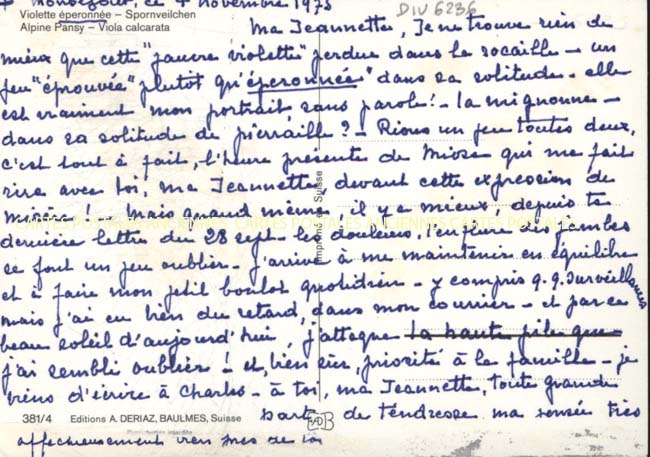 Montségour, ce 4 novembre 1975
DIV 6236
Violette éperonnée – Spornveilchen
Alpine Pansy – Viola calcarata
Ma Jeannette, Je ne trouve rien de
mieux que cette "pauvre violette" perdue dans la rocaille – un
peu "éprouvée" plutôt qu'"éperonnée" dans sa solitude – elle
est vraiment mon portrait sans parole! – la mignonne –
dans sa solitude de pierraille? – Rions un peu toutes deux,
c'est tout à fait, l'heure présente de qui me fait
rire avec toi, ma Jeannette, devant cette expression de
misère! Mais quand même, il y a mieux depuis ta
dernière lettre du 28 sept – les douleurs, l'enflure des jambes
se font un peu oublier – j'arrive à me maintenir en équilibre
et à faire mon petit boulot quotidien – y compris q.q. surveillances
mais j'ai eu bien du retard, dans mon courrier – et par ce
beau soleil d'aujourd'hui, j'attaque la haute pile que
j'ai semblé oublier! et, bien sûr, priorité à la famille – je
viens d'écrire à Charles – à toi, ma Jeannette, toute grande
CARTES POSTALES ANCIENNES CARTES POSTALES ANCIENNES CARTES POSTALES
Imprimé en Suisse
381/4 Editions A. DERIAZ, BAULMES, Suisse
de tendresse ma pensée très
affectueusement